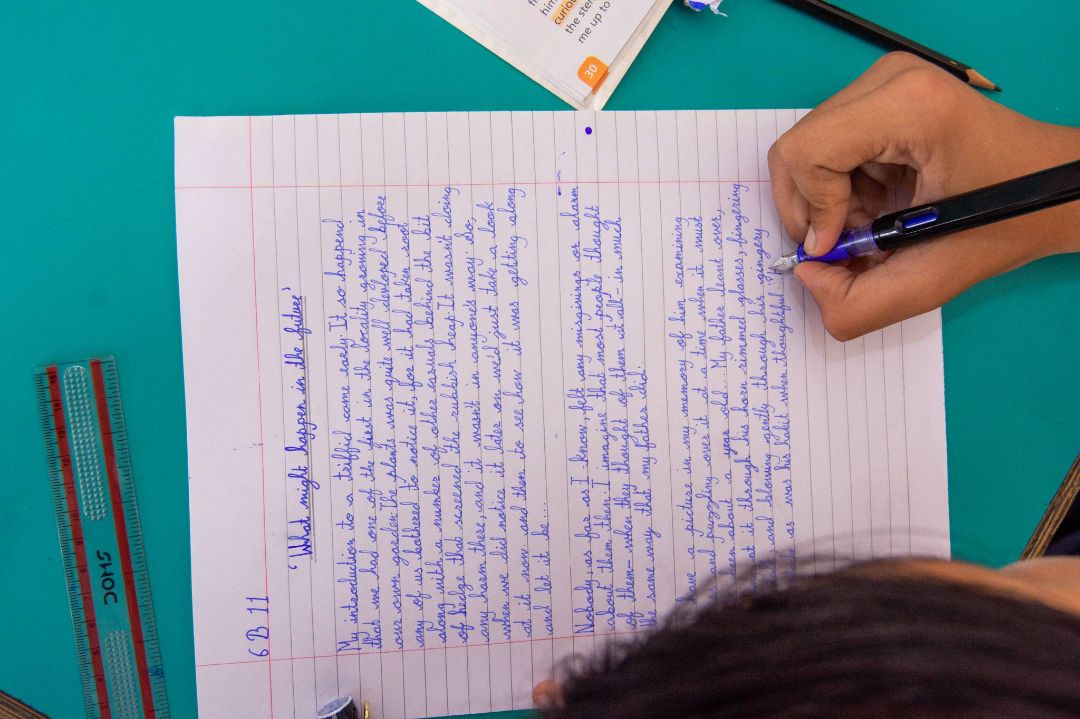 6 B 11
'What might happen in the future'
My introduction to a triffid came early. It so happend
that we had one of the first in the locality growing in
our own garden. The plants was quite well devloped before
any of us bothered to notice it, for it had taken root
along with a number of other casuals behind the bit
of hedge that screened the rubbish heap. It wasn't doing
any harm there, and it wasn't in anyone's way. So,
when we did notice it later on we'd just take a look
at it now and then to see how it was getting along
and let it be...
Nobody, as far as I know, felt any misgivings or alarm
about them then. I imagine that most people thought
of them - when they thought of them at all - in much
the same way that my father did.
have a picture in my memory of him examining
and puzzling over it at a time when it must
been about a year old... My father leant over,
at it through his horn-remmed glasses, fingering
and blowing gently through his gingery
as was his habit when thoughtful
him
curiou
the ster
me up to
30
DOMS